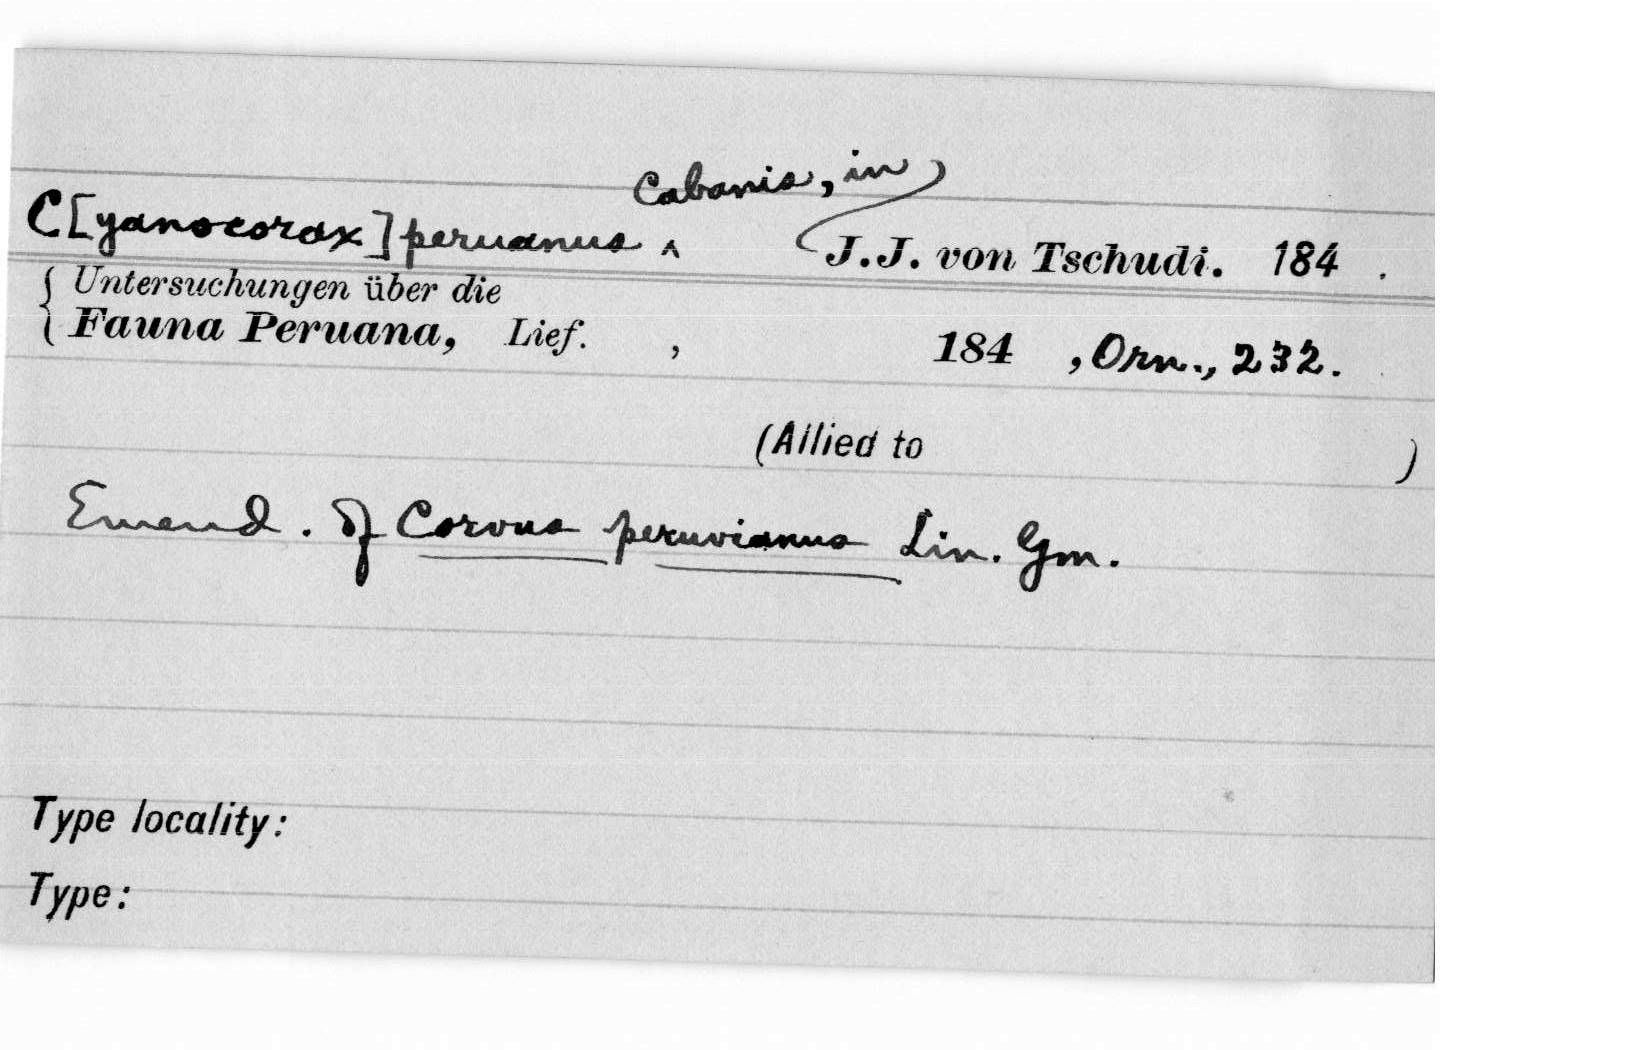 Cabanis, in
C[yanocorax] peruanus ^ J. J. von Tschudi. 184 .
{ Untersuchungen über die
{ Fauna Peruana, Lief. , 184 , Orn., 232.
(Allied to )
Emend. of Corvus peruvianus Lin. Gm.
Type locality:
Type: